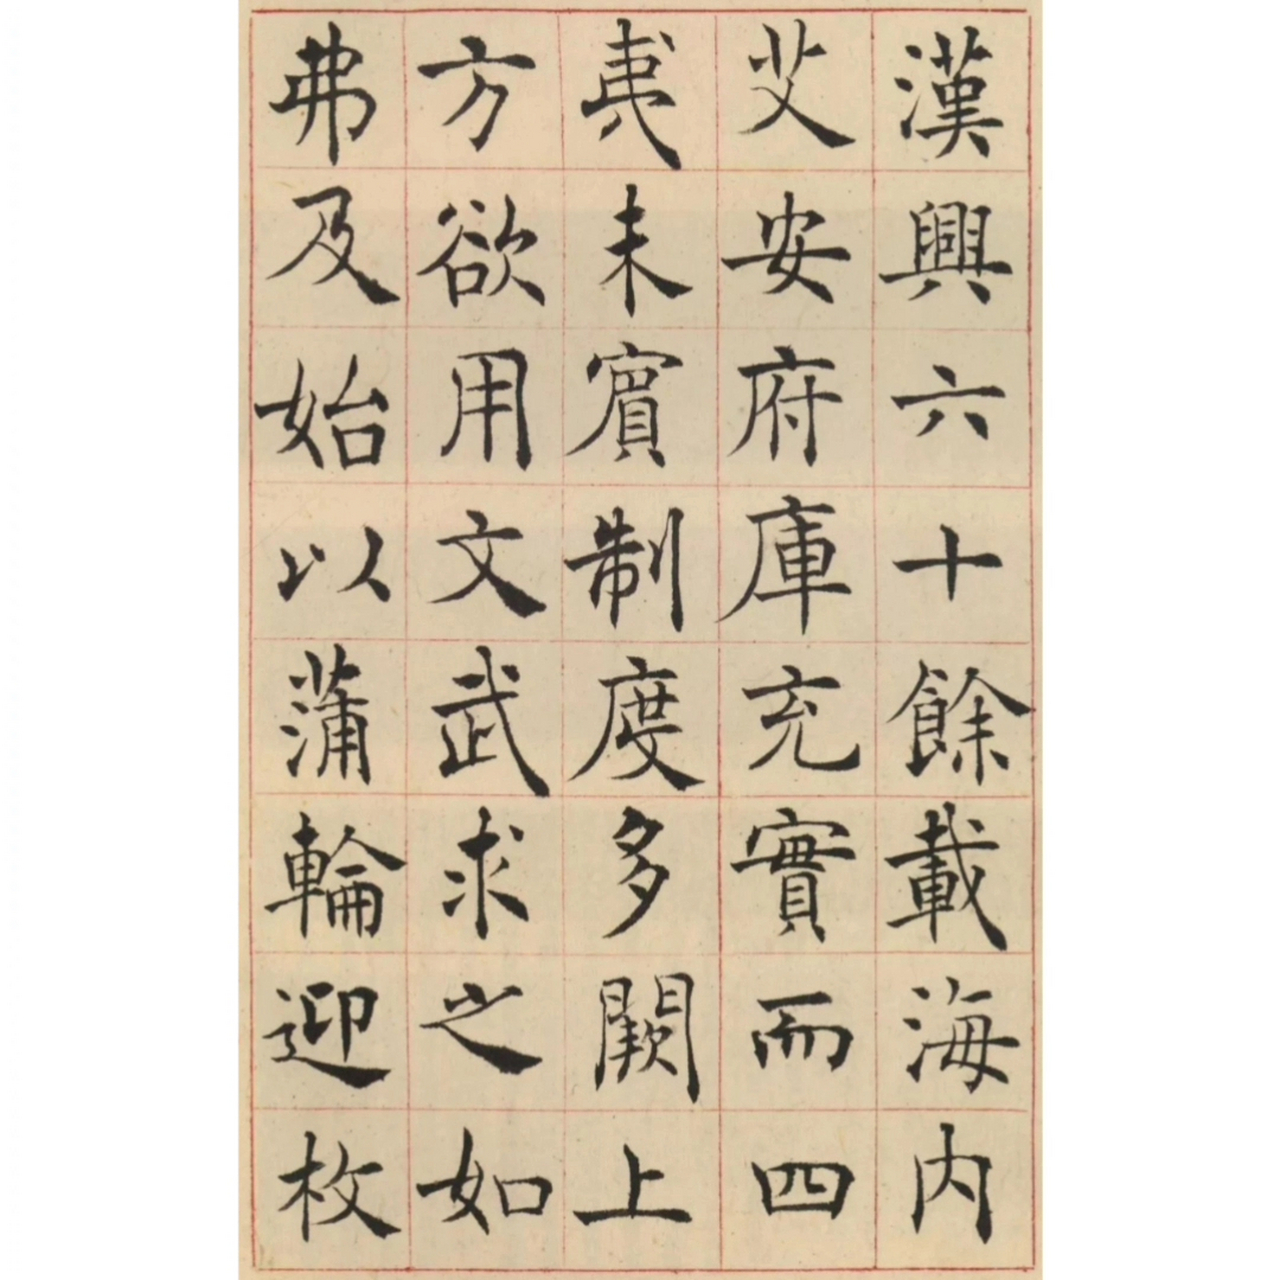 漢興六十餘載海內
艾安府庫充實而四
夷未賓制度多闕上
方欲用文武求之如
弗及始以蒲輪迎枚